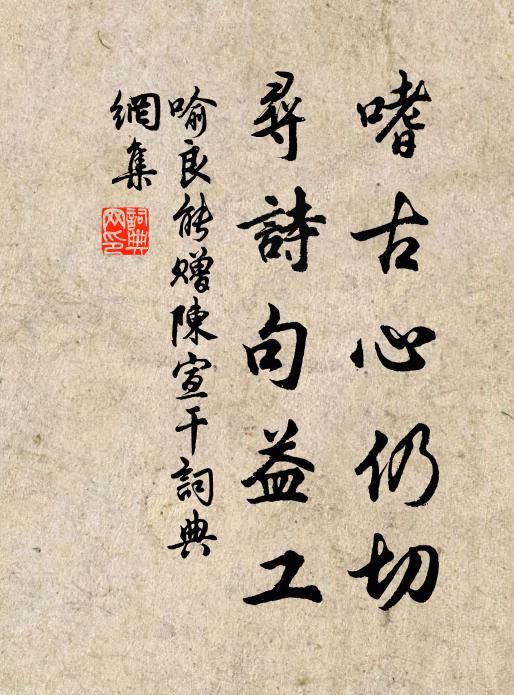 嗜古心仍切
尋詩句益工
喻良能赠陳宣干詞典
網集
詞典
网印